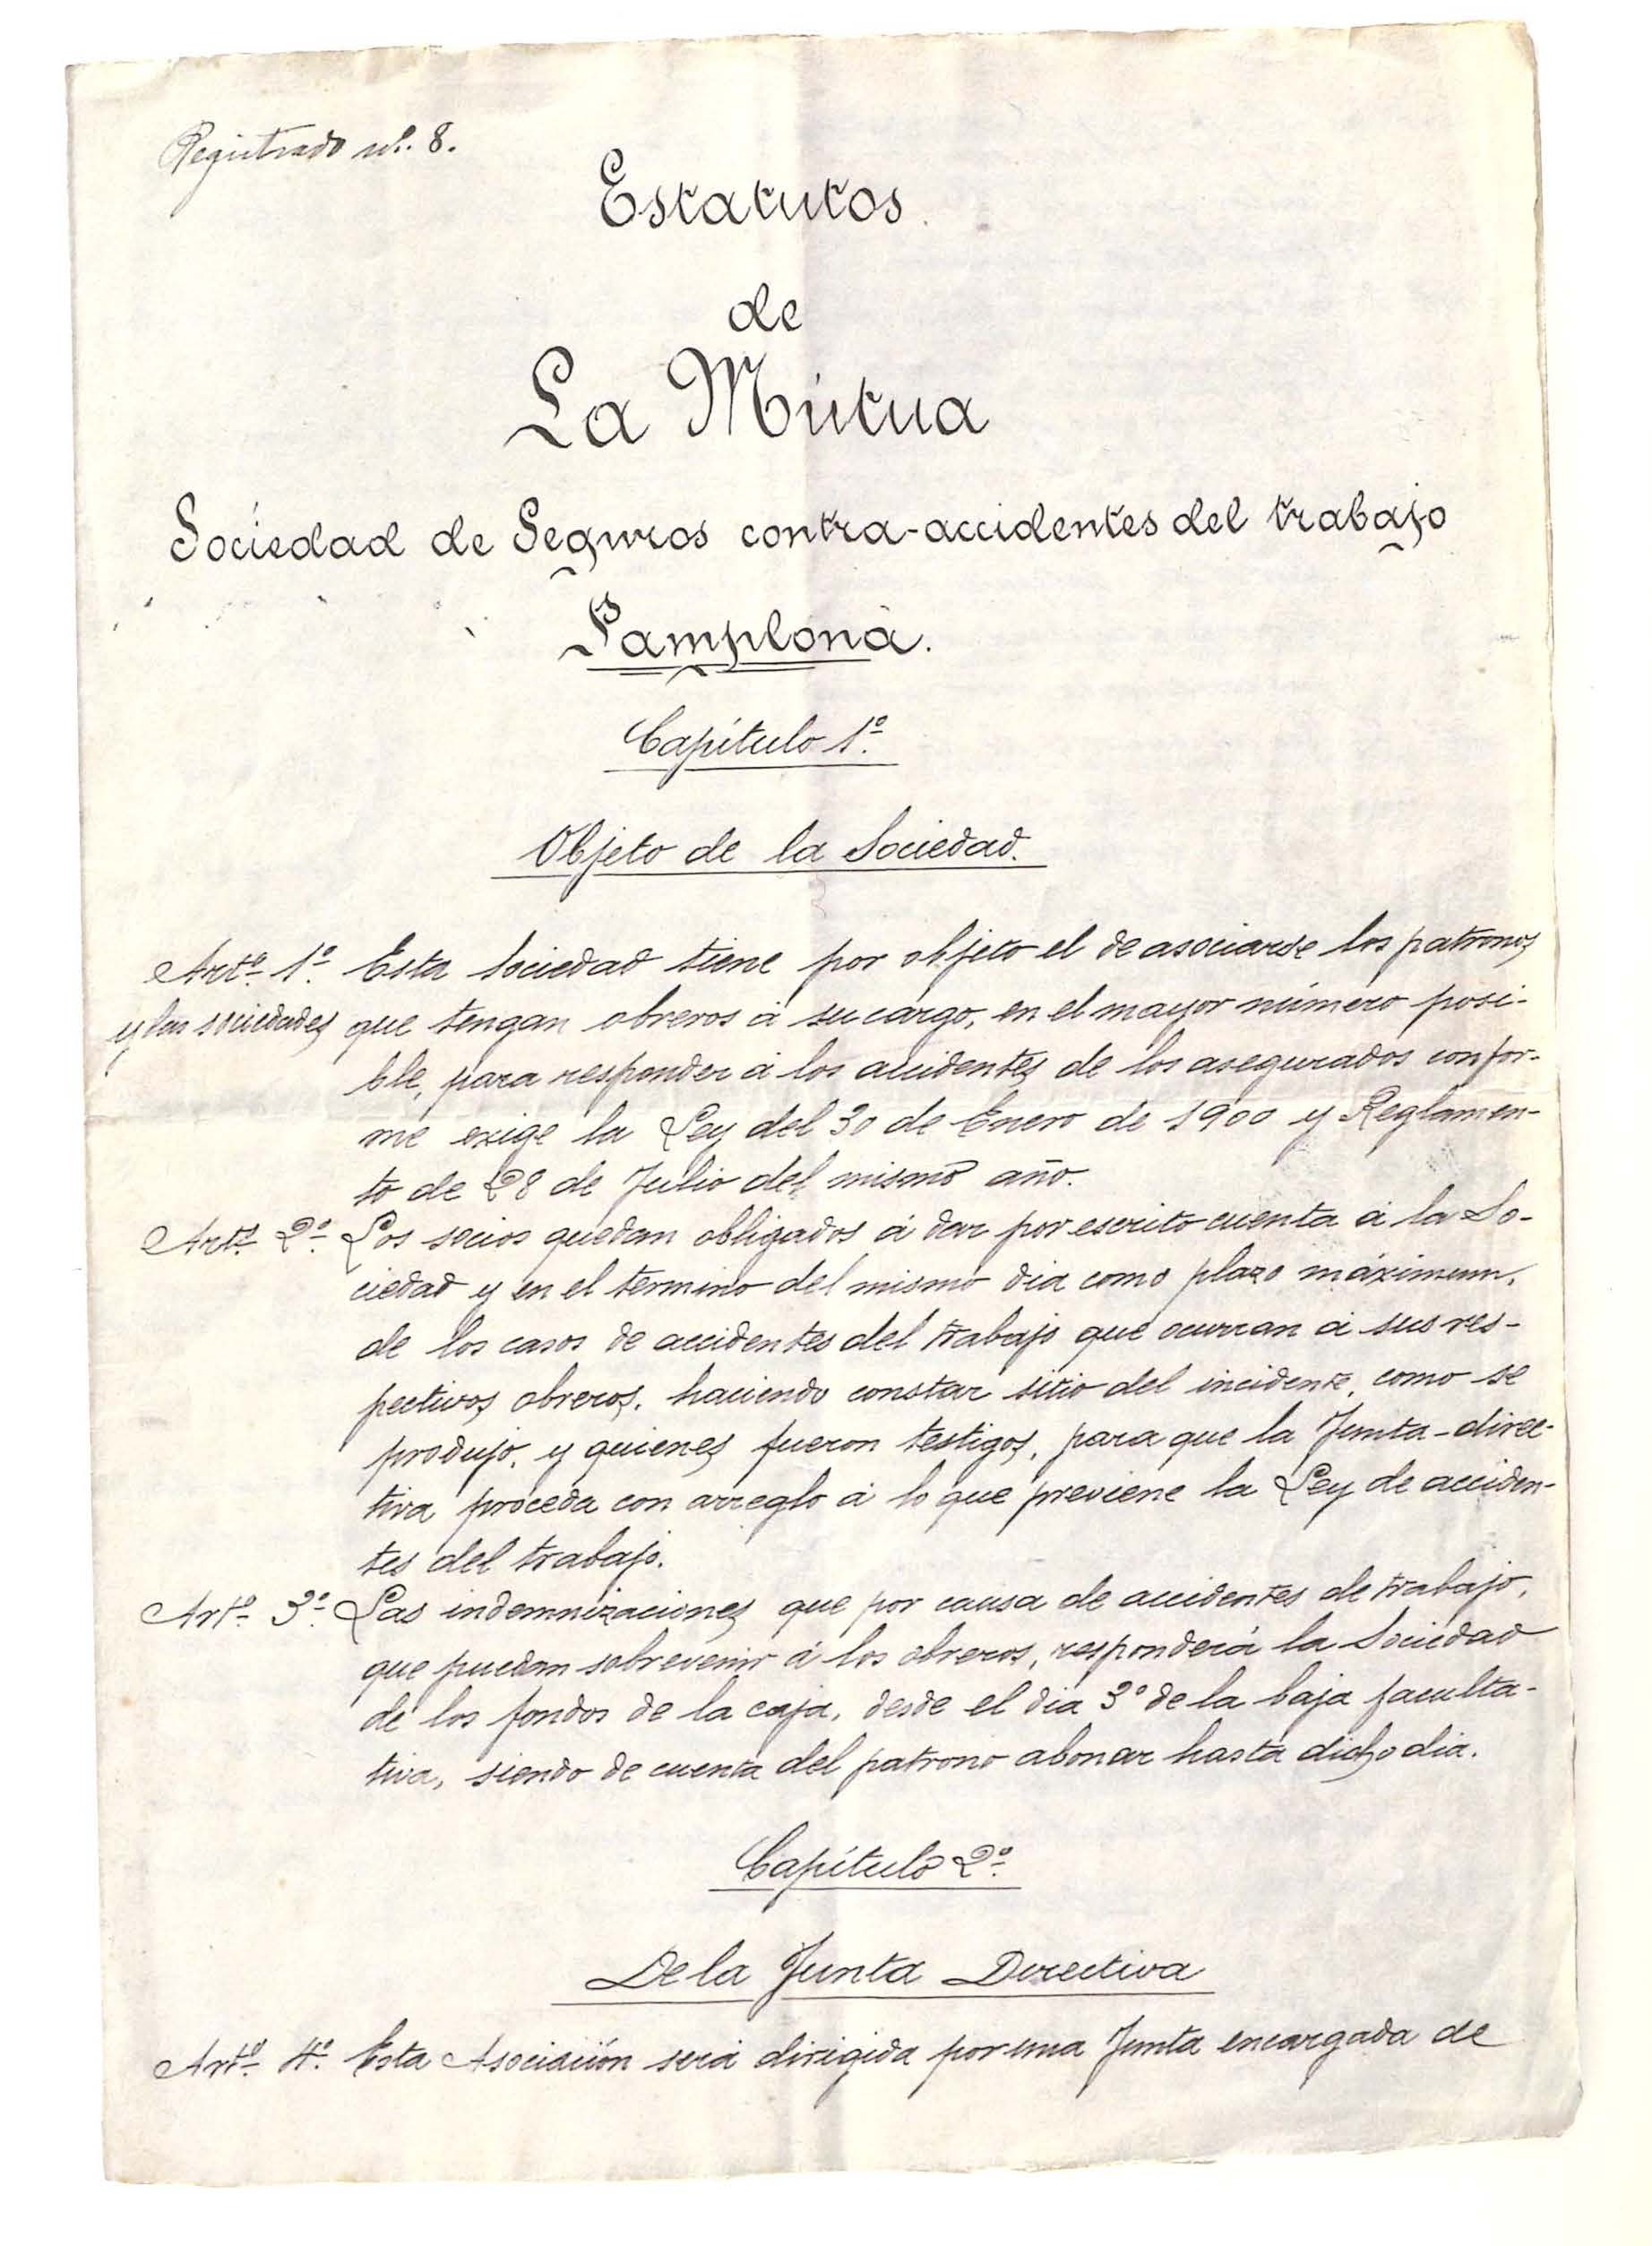 Registrado nº. 8.
Estatutos
de
La Mútua
Sociedad de Seguros contra-accidentes del trabajo
Pamplona.
Capítulo 1º.
Objeto de la Sociedad.
Artº. 1º. Esta Sociedad tiene por objeto el de asociarse los patronos
y las sociedades que tengan obreros á su cargo, en el mayor número posi-
ble, para responder á los accidentes de los asegurados confor-
me exige la Ley del 30 de Enero de 1900 y Reglamen-
to de 28 de Julio del mismo año.
Artº. 2º. Los socios quedan obligados á dar por escrito cuenta á la So-
ciedad y en el termino del mismo dia como plazo máximum,
de los casos de accidentes del trabajo que ocurran á sus res-
pectivos obreros, haciendo constar sitio del incidente, como se
produjo, y quienes fueron testigos, para que la Junta-direc-
tiva proceda con arreglo á lo que previene la Ley de acciden-
tes del trabajo.
Artº. 3º. Las indemnizaciones que por causa de accidentes de trabajo,
que puedan sobrevenir á los obreros, responderá la Sociedad
de los fondos de la caja, desde el dia 3º de la baja faculta-
tiva, siendo de cuenta del patrono abonar hasta dicho dia.
Capítulo 2º.
De la Junta Directiva
Artº. 4º. Esta Asociación será dirigida por una Junta encargada de